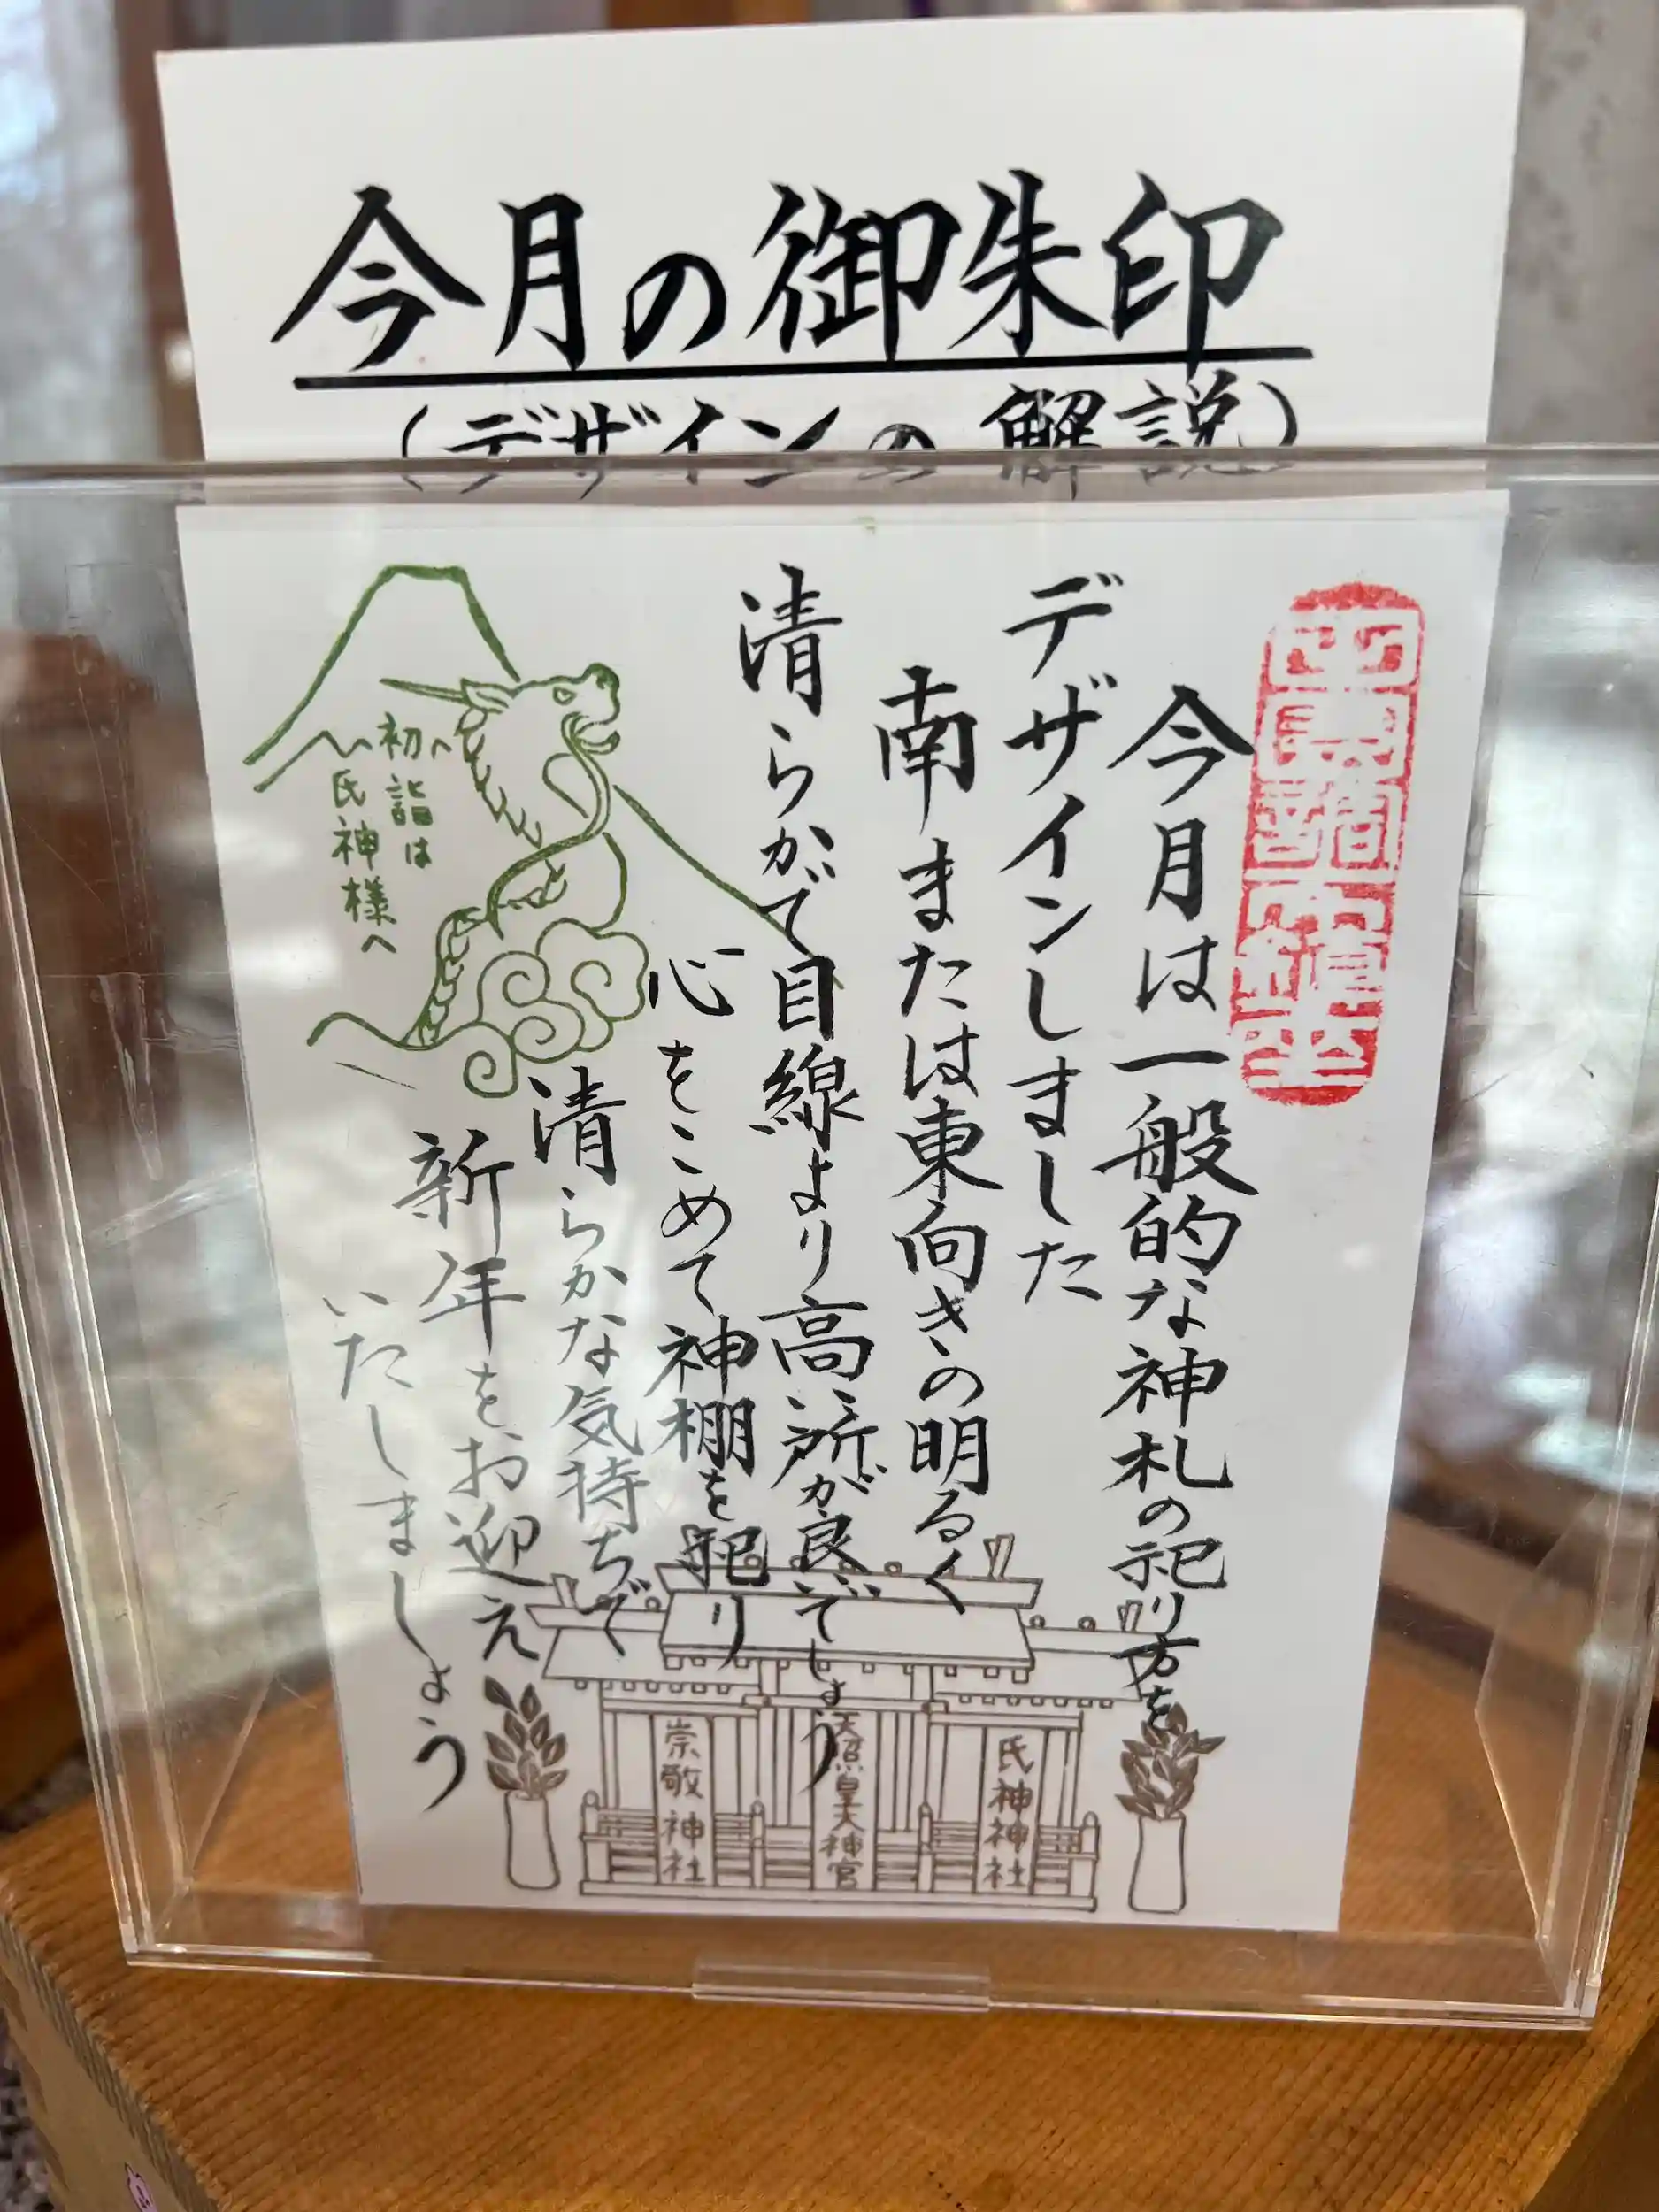 今月の御朱印
(デザインの解説)
今月は一般的な神札の祀り方を
デザインしました
南または東向きの明るく
清らかで目線より高所が良いでしょう
心をこめて神棚を祀り
清らかな気持ちで
新年をお迎え
いたしましょう
初詣は
氏神様へ
氏神神社
天照皇大神宮
崇敬神社